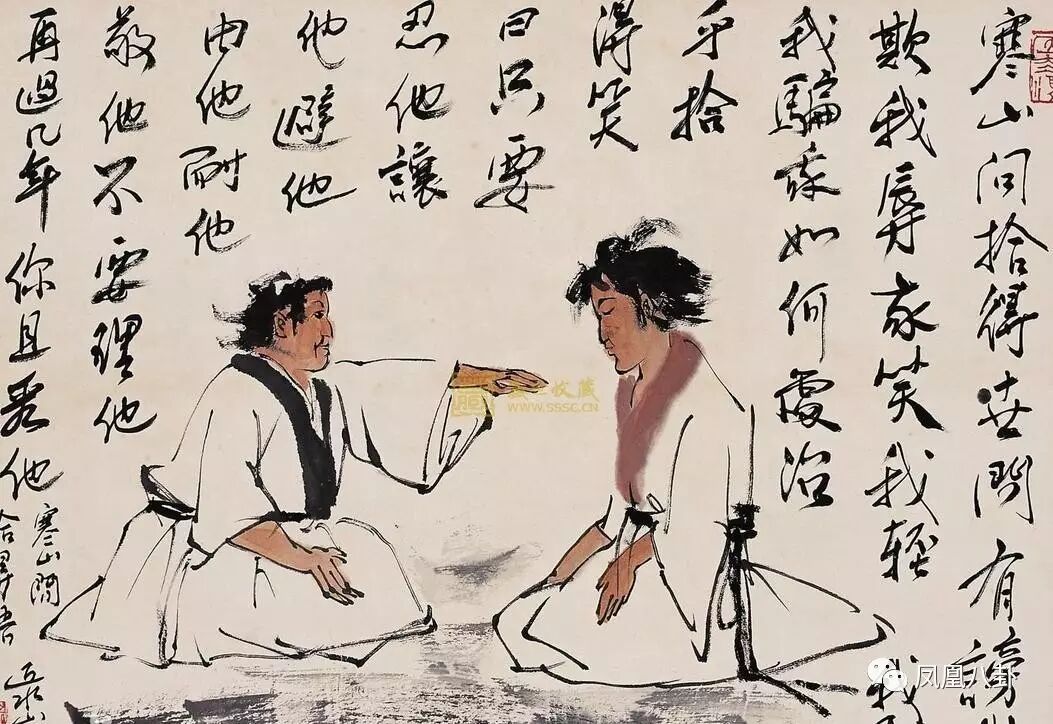 寒山问拾得世间有謗
欺我辱我笑我轻我
我騙我如何處治
乎拾
得笑
曰只要
忍他讓
他避他
由他耐他
敬他不要理他
再過几年你且看他
寒山問
收藏
WWW.SSSC.CN
凤凰八卦